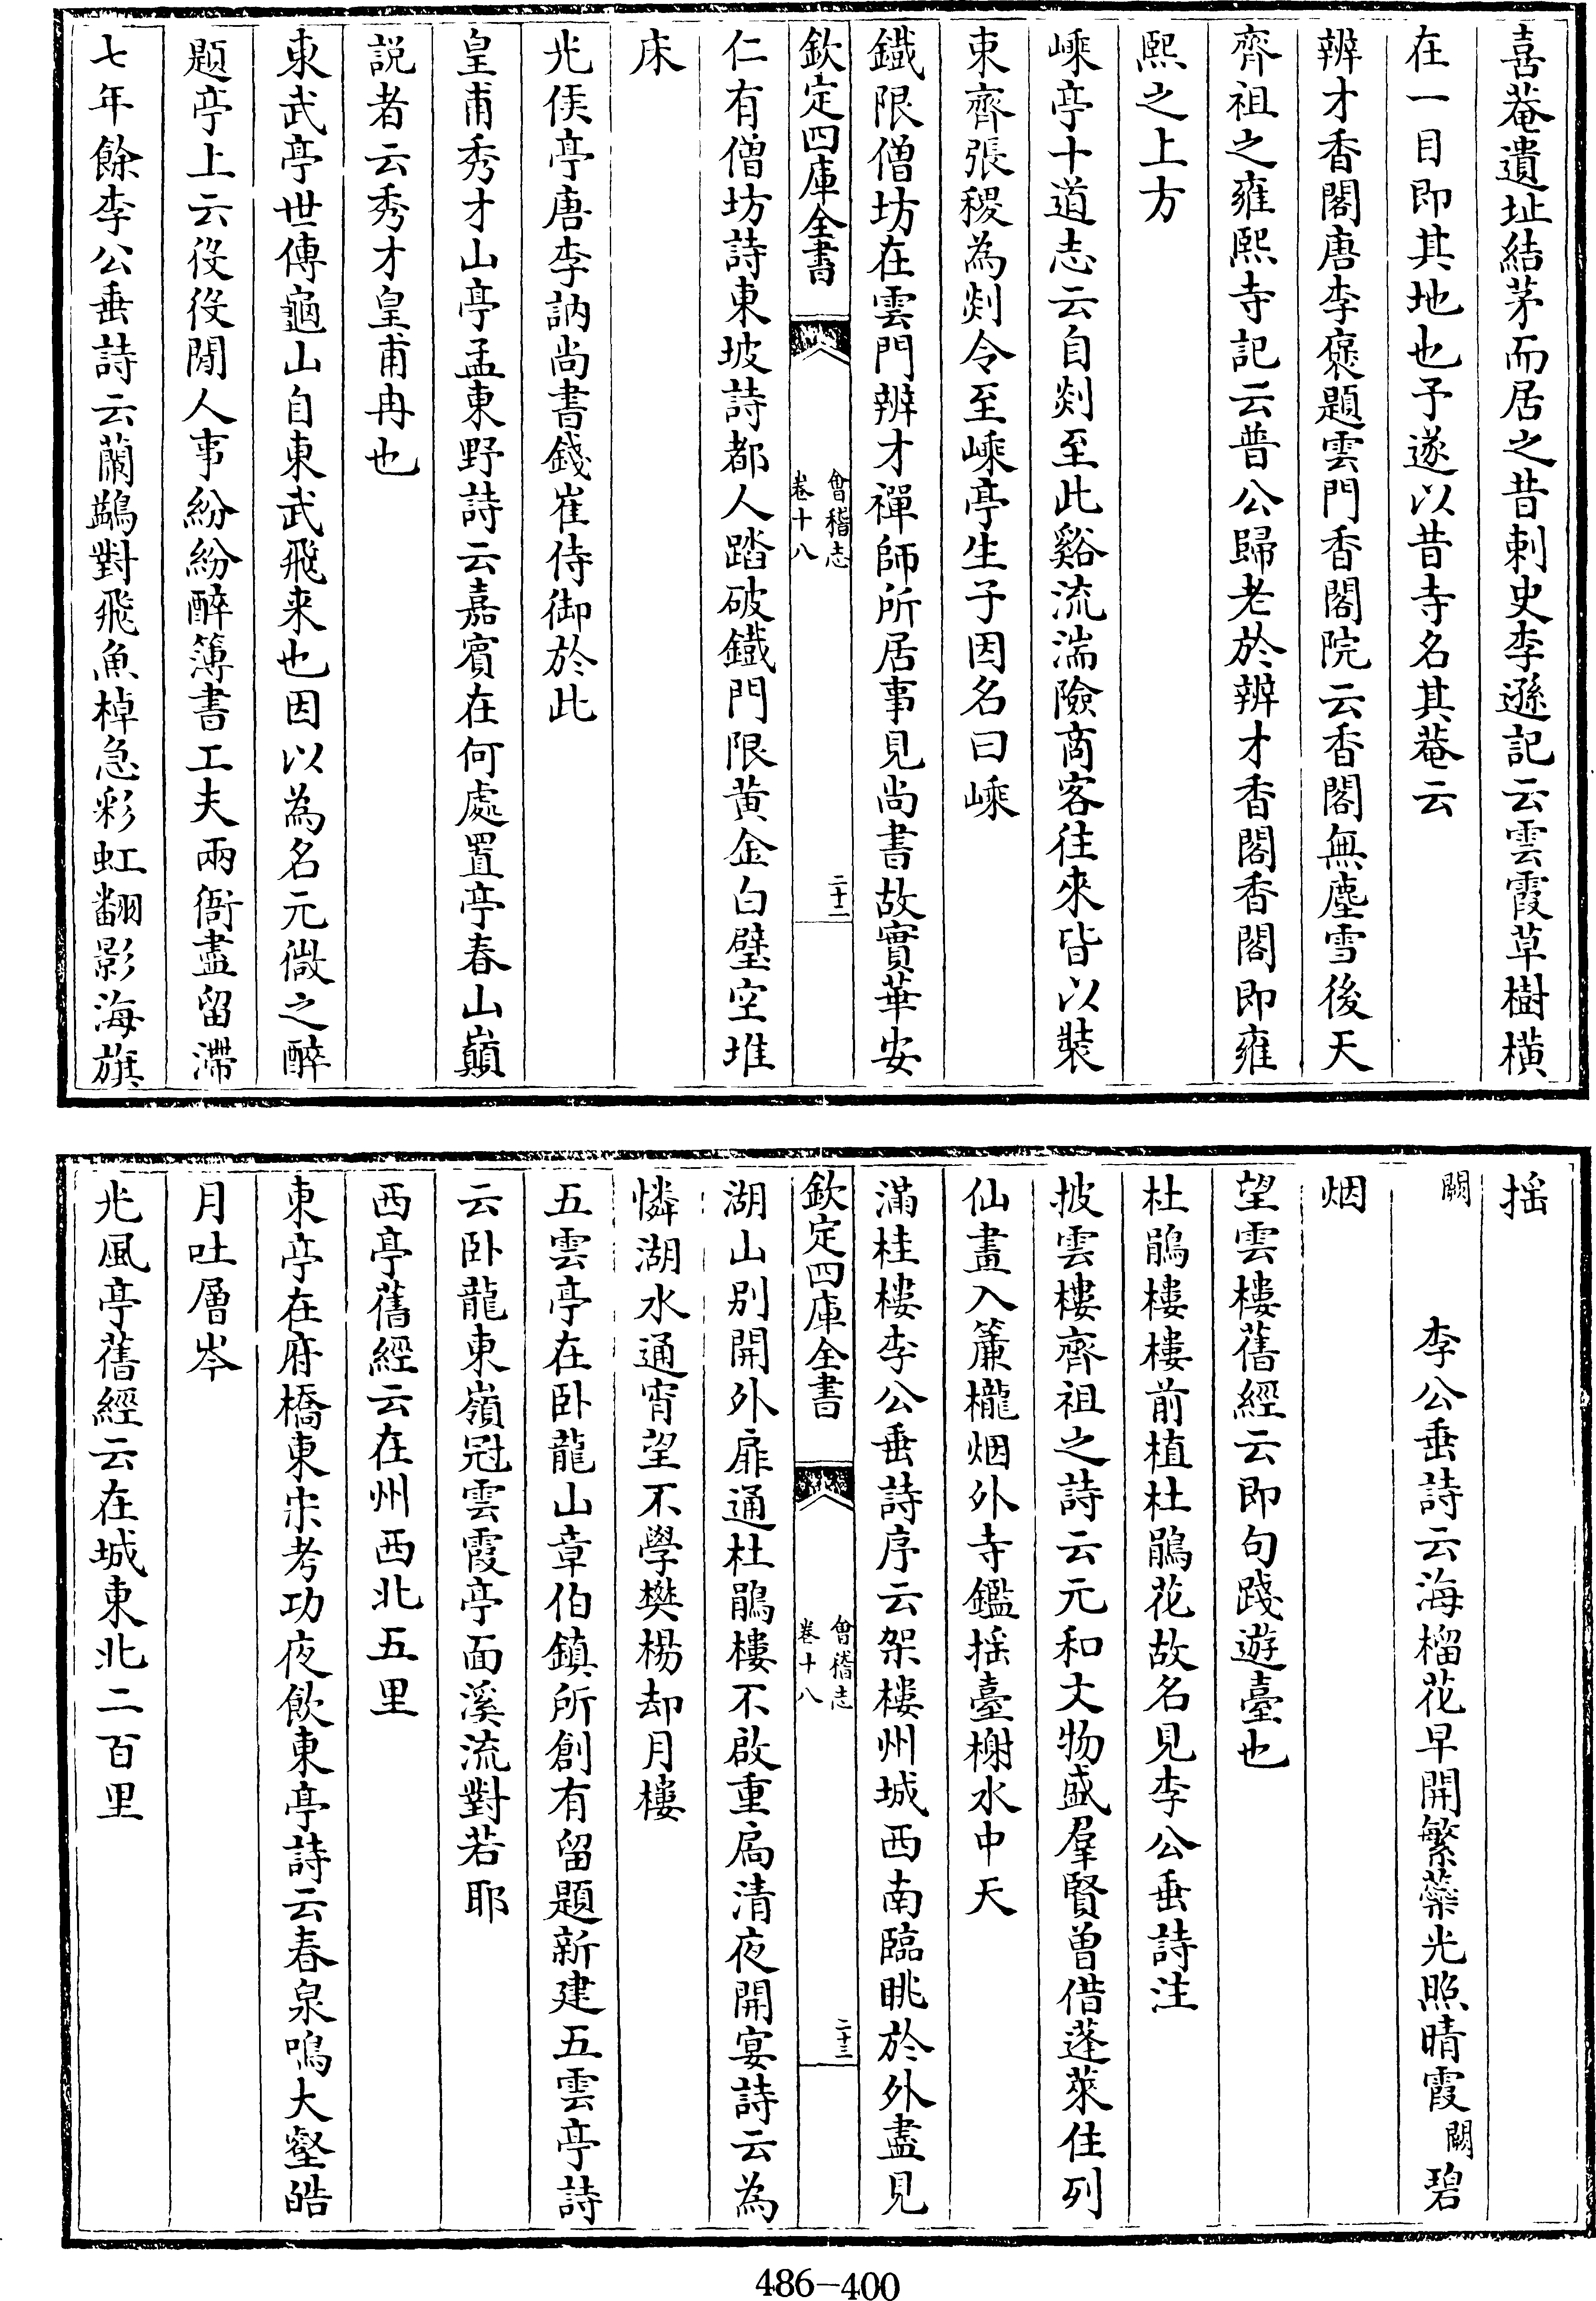 喜菴遺址結茅而居之昔刺史李遜記云雲霞草樹橫
在一目即其地也予遂以昔寺名其菴云
辨才香閣唐李褒題雲門香閣院云香閣無塵雪後天
齊祖之雍熙寺記云普公歸老於辨才香閣香閣即雍
熙之上方
嵊亭十道志云自剡至此谿流湍險商客往來皆以裝
束齊張稷為剡令至嵊亭生子因名曰嵊
鐵限僧坊在雲門辨才禪師所居事見尚書故實華安
欽定四庫全書
會稽志
卷十八
二十二
仁有僧坊詩東坡詩都人踏破鐵門限黄金白璧空堆
床
光俟亭唐李訥尚書餞崔侍御於此
皇甫秀才山亭孟東野詩云嘉賓在何處置亭春山巔
説者云秀才皇甫冉也
東武亭世傳龜山自東武飛来也因以為名元微之醉
題亭上云役役閒人事紛紛醉簿書工夫兩衙盡留滯
七年餘李公垂詩云蘭鷁對飛魚棹急彩虹翻影海旗
揺
闕　李公垂詩云海榴花早開繁蘂光照晴霞闕碧
烟
望雲樓舊經云即句踐遊臺也
杜鵑樓樓前植杜鵑花故名見李公垂詩注
披雲樓齊祖之詩云元和文物盛羣賢曽借蓬萊住列
仙畫入簾櫳烟外寺鑑揺臺榭水中天
滿桂樓李公垂詩序云架樓州城西南臨眺於外盡見
欽定四庫全書
會稽志
卷十八
二十三
湖山别開外扉通杜鵑樓不啟重扃清夜開宴詩云為
憐湖水通宵望不學樊楊却月樓
五雲亭在卧龍山章伯鎮所創有留題新建五雲亭詩
云卧龍東嶺冠雲霞亭面溪流對若耶
西亭舊經云在州西北五里
東亭在府橋東宋考功夜飲東亭詩云春泉鳴大壑皓
月吐層岑
光風亭舊經云在城東北二百里
486-400